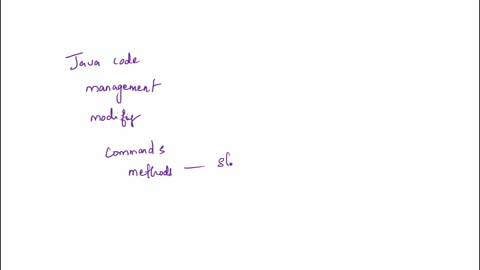 Java code
management
modify
commands
methods — sl.